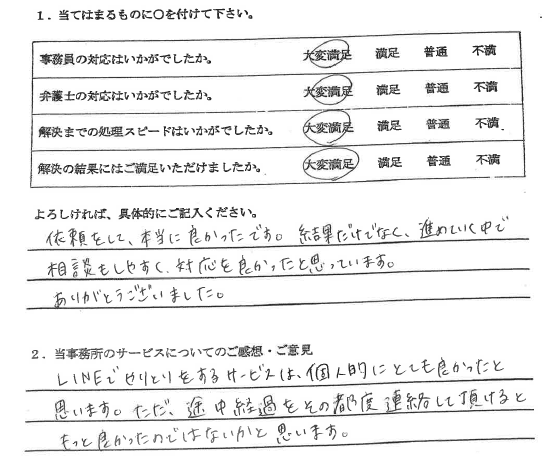 1．当てはまるものに○を付けて下さい。
事務員の対応はいかがでしたか。 大変満足 満足 普通 不満
弁護士の対応はいかがでしたか。 大変満足 満足 普通 不満
解決までの処理スピードはいかがでしたか。 大変満足 満足 普通 不満
解決の結果にはご満足いただけましたか。 大変満足 満足 普通 不満
よろしければ、具体的にご記入ください。
依頼をして、本当に良かったです。結果だけでなく、進めていく中で
相談もしやすく、対応も良かったと思っています。
ありがとうございました。
2．当事務所のサービスについてのご感想・ご意見
LINEでやりとりをするサービスは、個人的にとても良かったと
思います。ただ、途中経過をその都度連絡して頂けると
もっと良かったのではないかと思います。